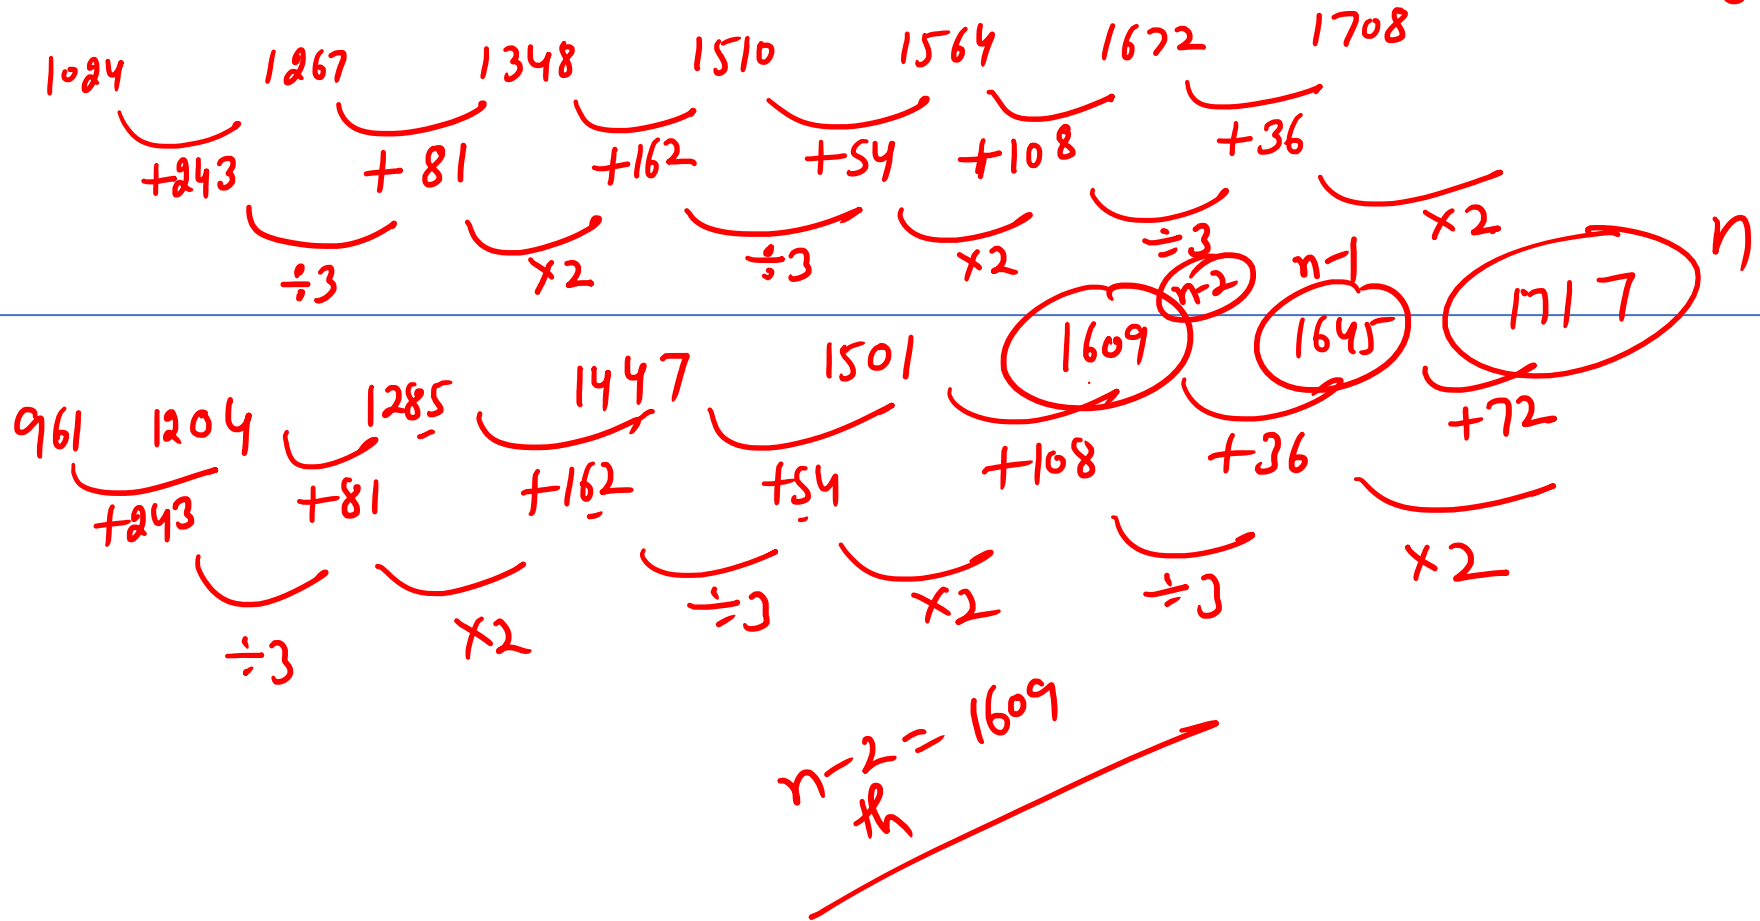 1024 1267 1348 1510 1564 1672 1708
+243 +81 +162 +54 +108 +36
÷3 ×2 ÷3 ×2 ÷3 ×2
n-2 n-1 n
961 1204 1285 1447 1501 1609 1645 1717
+243 +81 +162 +54 +108 +36 +72
÷3 ×2 ÷3 ×2 ÷3 ×2
n-2 = 1609
th